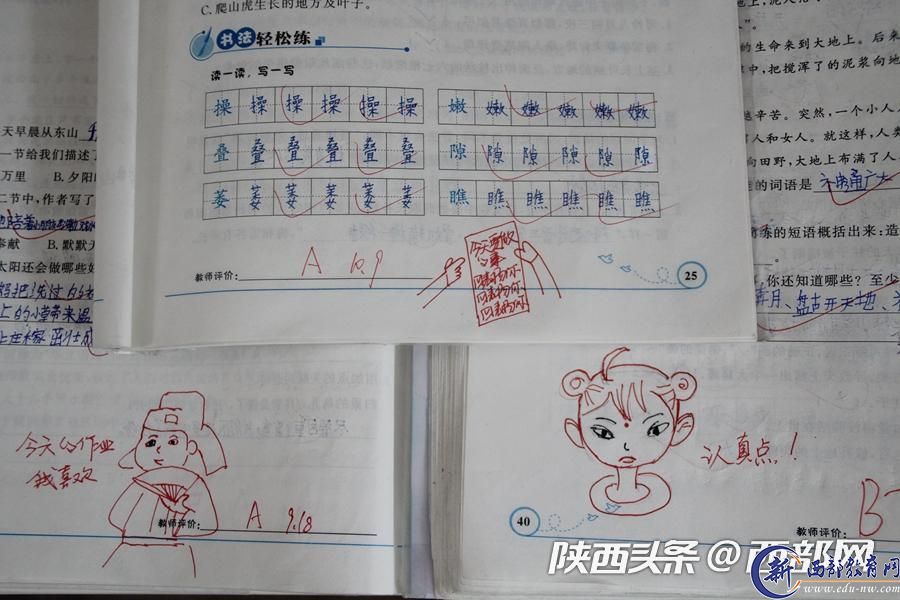 C.爬山虎生长的地方及叶子。
书法轻松练
读一读，写一写
操 操 操 操 操 操
嫩 嫩 嫩 嫩 嫩 嫩
叠 叠 叠 叠 叠 叠
隙 隙 隙 隙 隙 隙
萎 萎 萎 萎 萎 萎
瞧 瞧 瞧 瞧 瞧 瞧
教师评价： A 10.9
今天要做
25
天早晨从东山
一节给我们描述了
万里 B.夕阳
二节中，作者写了
奉献 B.默默
太阳还会做哪些好
的生命来到大地上。后来
中，把搅浑了的泥浆向地
辛苦。突然，一个小人
人和女人。就这样，人类
向田野，大地上布满了人
的词语是
练的短语概括出来：造
你还知道哪些？至少
月、盘古开天地、
今天的作业
我喜欢
教师评价： A 9.18
认真点！
40
教师评价： B
陕西头条@西部网
新 西部教育网
www.edu-nw.com